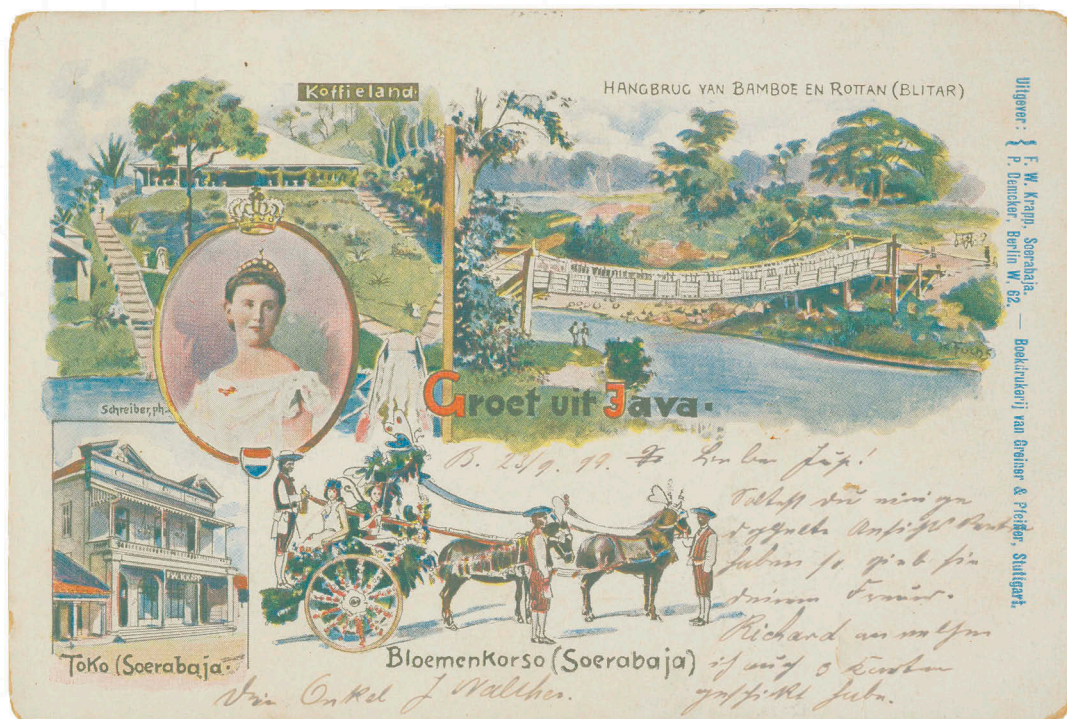 Koffieland
HANGBRUG VAN BAMBOE EN ROTTAN (BLITAR)
Uitgever: { F. W. Krapp, Soerabaja.
P. Demcker, Berlin W. 62. — Boekdrukkerij van Greiner & Pfeiffer, Stuttgart.
Schreiber, ph.
Groet uit Java.
F.W. KRAPP
Toko (Soerabaja.
Bloemenkorso (Soerabaja)
Lieber Jup!
Solltest du einige
doppelte Ansichts
haben so gieb sie
deinem Freund
Richard an welchen
ich auch 3 Karten
geschickt habe.
Dein Onkel J Walther.